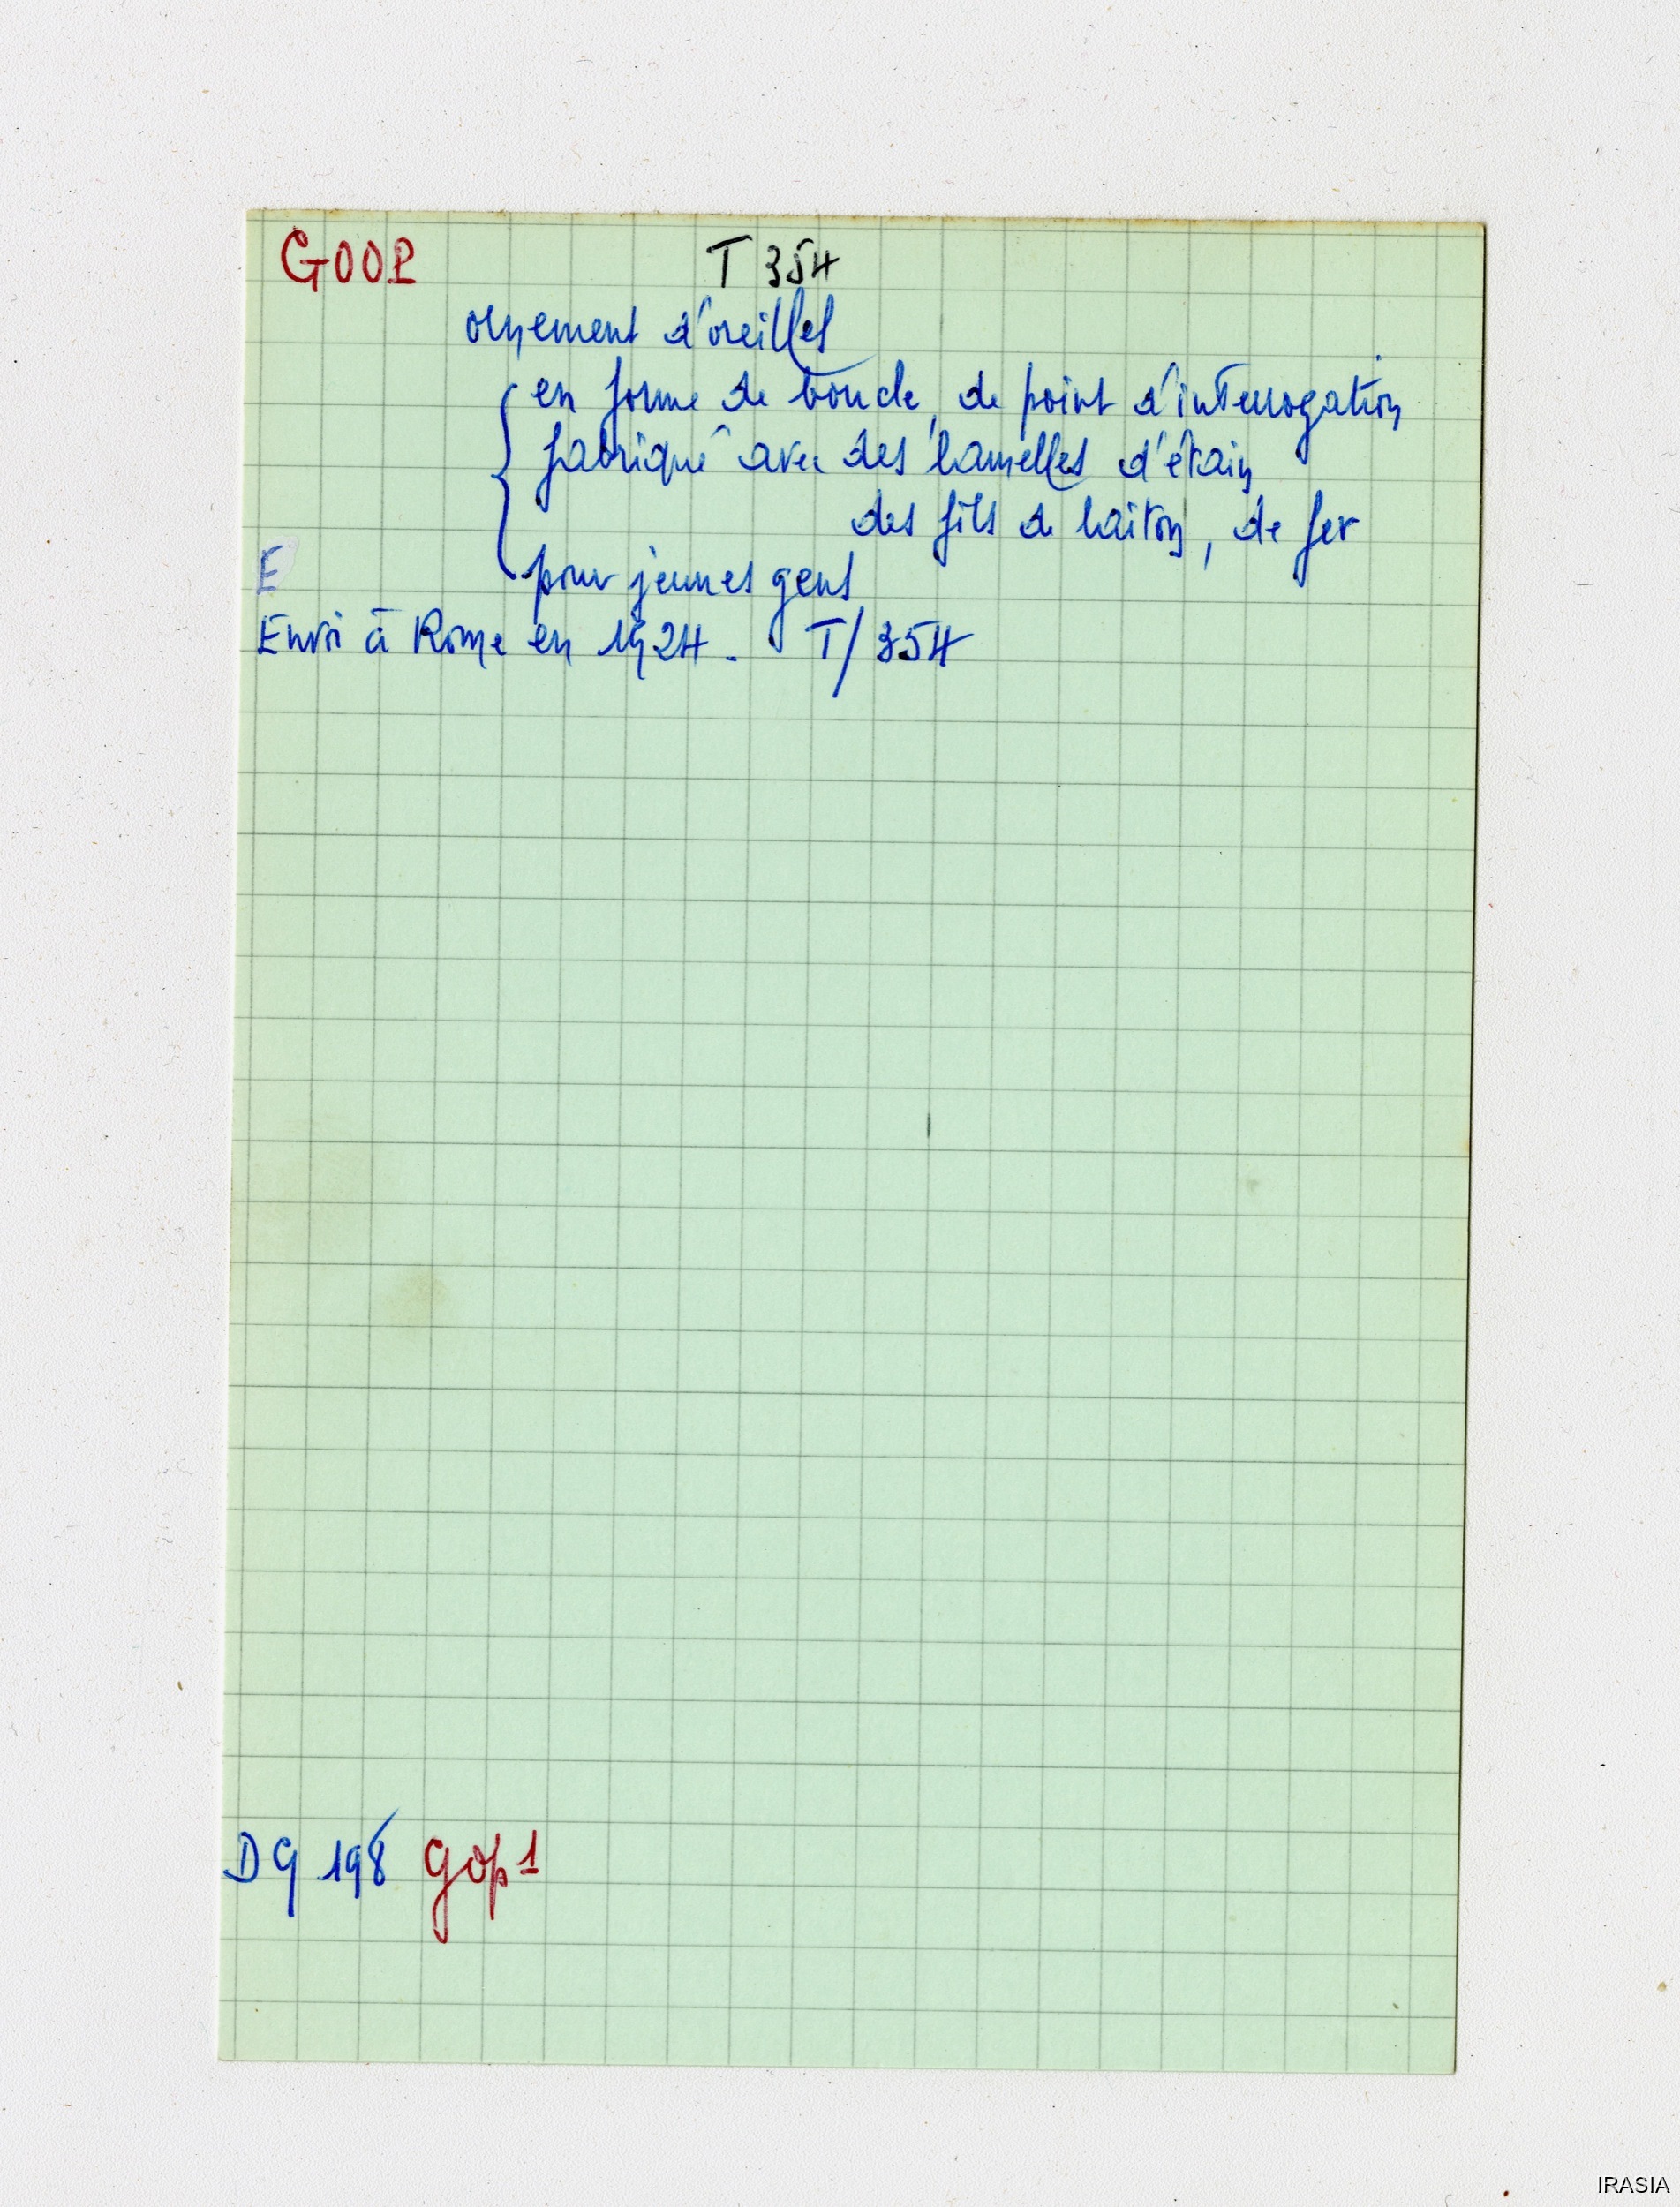 GOOP T 354
ornement d'oreilles
en forme de boucle, de point d'interrogation
fabriqué avec des lamelles d'étain
des fils de laiton, de fer
E
pour jeunes gens
Envoi à Rome en 1924. T/354
DG 198 gop 1
IRASIA